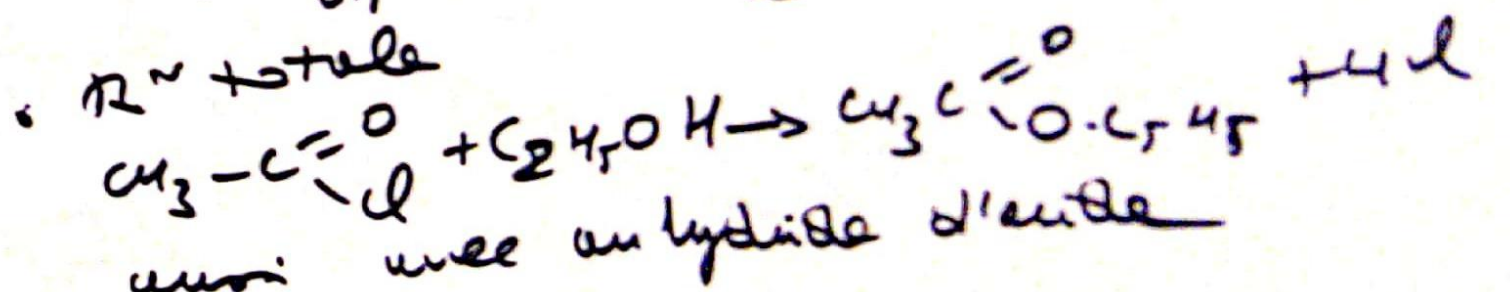 • R^n totale
CH3-C(=O)(-Cl) + C2H5OH → CH3C(=O)(-O·C5H5) + HCl
aussi avec anhydride d'acide